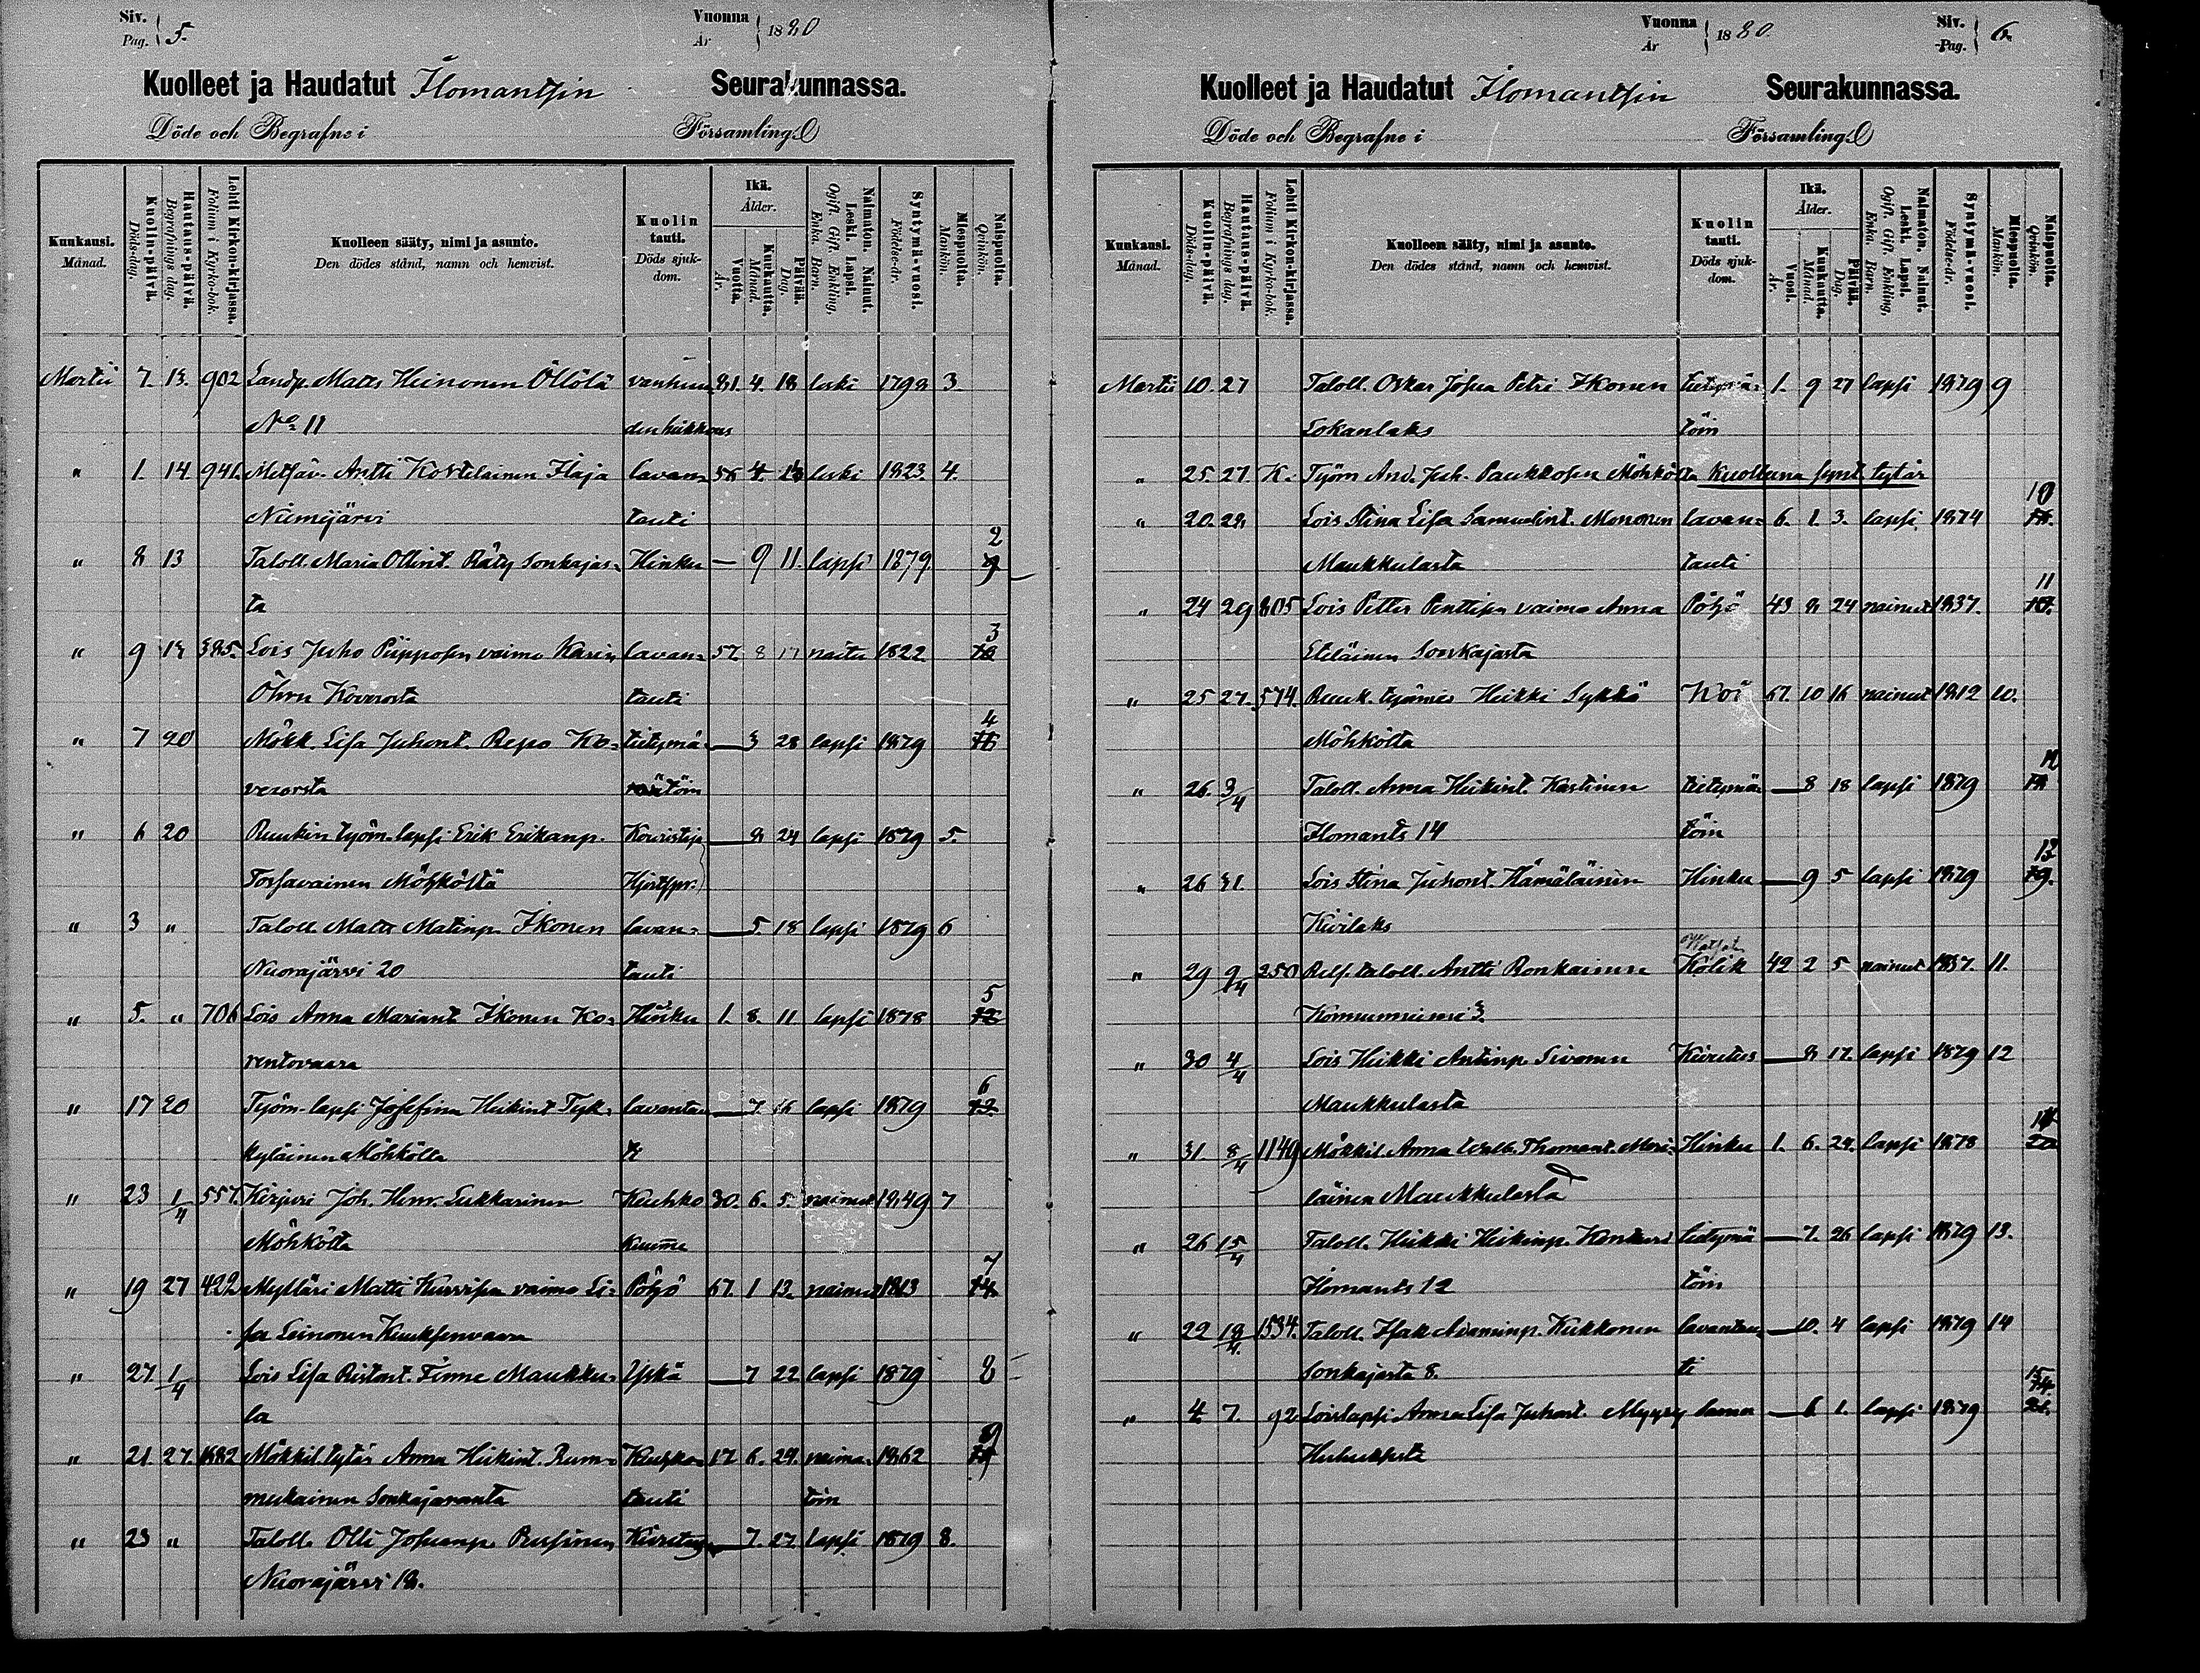 Siv. Pag. 5. Vuonna År 1880
Kuolleet ja Haudatut Ilomantsin Seurakunnassa.
Döde och Begrafne i Församling.
Kunkausi. Månad. Kuolin-päivä. Döds-dag. Hautaus-päivä. Begrafnings dag. Lehti Kirkon-kirjassa. Folium i Kyrko-bok. Kuolleen sääty, nimi ja asunto. Den dödes stånd, namn och hemvist. Kuolin tauti. Döds sjukdom. Ikä. Ålder. Vuotta. År. Kuukautta. Månad. Päivää. Dag. Naimaton. Nainut. Leski. Lapsi. Ogift. Gift. Enkling, Enka. Barn. Syntymä-vuosi. Födelse-år. Miespuolta. Mankön. Naispuolta. Qvinkön.
Martii 7. 13. 902 Landp. Matts Heinonen Öllölä vanhuu 81. 4. 18 leski 1798 3.
No 11 den heikkous
" 1. 14. 941. Metsäv. Antti Kostilainen Ilaja lavan= 56 4. leski 1823. 4.
Niemijärvi tauti
" 8 13 Taloll. Maria Ollint. Räty Sonkajas= Hinku — 9 11. lapsi 1879. 2
ta
" 9 13 385. Lois Juho Piipposen vaimo Karin lavan= 57. 8 17 naitu 1822. 3
Öhvu Koverosta tauti
" 7 20 Mökk. Lisa Juhont. Repo Ko= tietymä= — 3 28 lapsi 1879 4
verosta töin
" 6 20 Ruukin työm. lapsi Erik Erikanp. — 8 24 lapsi 1879 5.
Torsavainen Möhköltä
" 3 " Taloll. Matts Matinp. Ikonen lavan= — 5. 18 lapsi 1879 6
Nuorajärvi 20 tauti
" 5. " 706 Lois Anna Mariant. Ikonen Ko= Hinku 1. 8. 11 lapsi 1878 5
rentovaara
" 17 20 Työm-lapsi Josefina Heikint. Tyk= lavantau — 7. 16 lapsi 1879 6
kyläinen Möhköltä ti
" 23 1/4 557. Kirjuri Joh. Henr. Lukkarinen Keuhko 30. 6. 5. nainut 1849 7
Möhkölta kuume
" 19 27 422 Mylläri Matti Kurvisen vaimo Li= Pöhö 67. 1 13. nainut 1813 7
sa Leinonen Kuuksenvaara
" 27. 1/4 Lois Lisa Ristont. Finne Maukku= Yskä — 7 22 lapsi 1879 8
la
" 21. 27. 1682 Mökkil. tytär Anna Heikint. Rum= Keuhko= 17 6. 29. naima= 1862 9
mukainen Sonkajanranta tauti toin
" 23 " Taloll. Olli Josuanp. Pussinen Kiiretus — 7. 27 lapsi 1879 8.
Nuorajärvi 18.
Vuonna År 1880. Siv. Pag. 6.
Kuolleet ja Haudatut Ilomantsin Seurakunnassa.
Döde och Begrafne i Församling.
Kunkausi. Månad. Kuolin-päivä. Döds-dag. Hautaus-päivä. Begrafnings dag. Lehti Kirkon-kirjassa. Folium i Kyrko-bok. Kuolleen sääty, nimi ja asunto. Den dödes stånd, namn och hemvist. Kuolin tauti. Döds sjukdom. Ikä. Ålder. Vuosi. År. Kuukautta. Månad. Päivää. Dag. Naimaton. Nainut. Leski. Lapsi. Ogift. Gift. Enkling, Enka. Barn. Syntymä-vuosi. Födelse-år. Miespuolta. Mankön. Naispuolta. Qvinkön.
Martii 10. 27 Taloll. Oskar Josua Petri Ikonen tietymä= 1. 9 27 lapsi 1879 9
Lokanlaks töin
" 25. 27. K. Työm And. Juh. Paukkosen Möhkölta Kuolleena synt. tytär
" 20. 28. Lois Stina Lisa Samuelint. Mononen lavan= 6. 1. 3. lapsi. 1874 10
Maukkulasta tauti
" 24 29 805 Lois Petter Penttisen vaimo Anna Pöhö 43 8 24 nainut 1837. 11
Eteläinen Sonkajasta
" 25 27. 574. Ruuk. työmies Heikki Sykkö Koi 67. 10 16 nainut 1812 10.
Möhkölta
" 26. 3/4 Taloll. Anna Heikint. Kastinen tietymä= — 8 18 lapsi 1879 12
Ilomants 14 töin
" 26 31. Lois Stina Juhont. Hämäläinen Hinku — 9 5 lapsi 1879 13
Kivilaks
" 29 9/4 250 taloll. Antti Ronkainen Kolik 42 2 5 nainut 1837. 11.
Kommunniemi 3.
" 30 4/4 Lois Heikki Antinp. Sivonen Kiiretus — 8 17. lapsi 1879 12
Maukkulasta
" 31. 8/4 1149 Mökkil. Anna Walb. Thomant. Meri= Hinku 1. 6. 24. lapsi 1878 14
läinen Maukkulasta
" 26 15/4 Taloll. Heikki Heikinp. Kontturi tietymä — 7. 26 lapsi 1879 13.
Ilomants 12 töin
" 22 18/4. 1534. Taloll. Isak Adaminp. Kukkonen lavantau= — 10. 4 lapsi 1879 14
Sonkajasta 8. ti
" 4. 7. 92 Loislapsi Anna Lisa Juhont. Myyry — 6 1. lapsi 1879 15
Huhuksesta